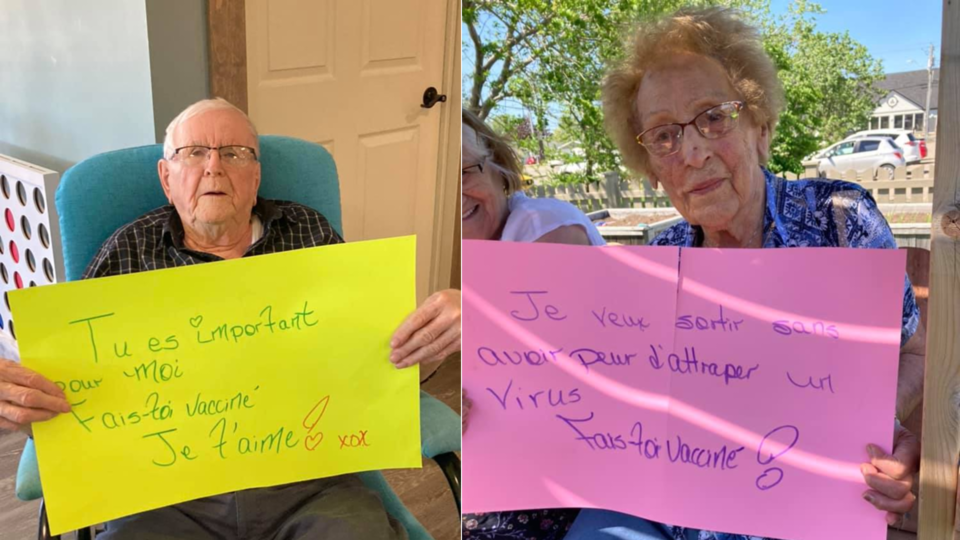 Tu es important
pour moi
Fais-toi vacciné
Je t'aime! xox
Je veux sortir sans
avoir peur d'attraper un
Virus
Fais-toi vacciné!